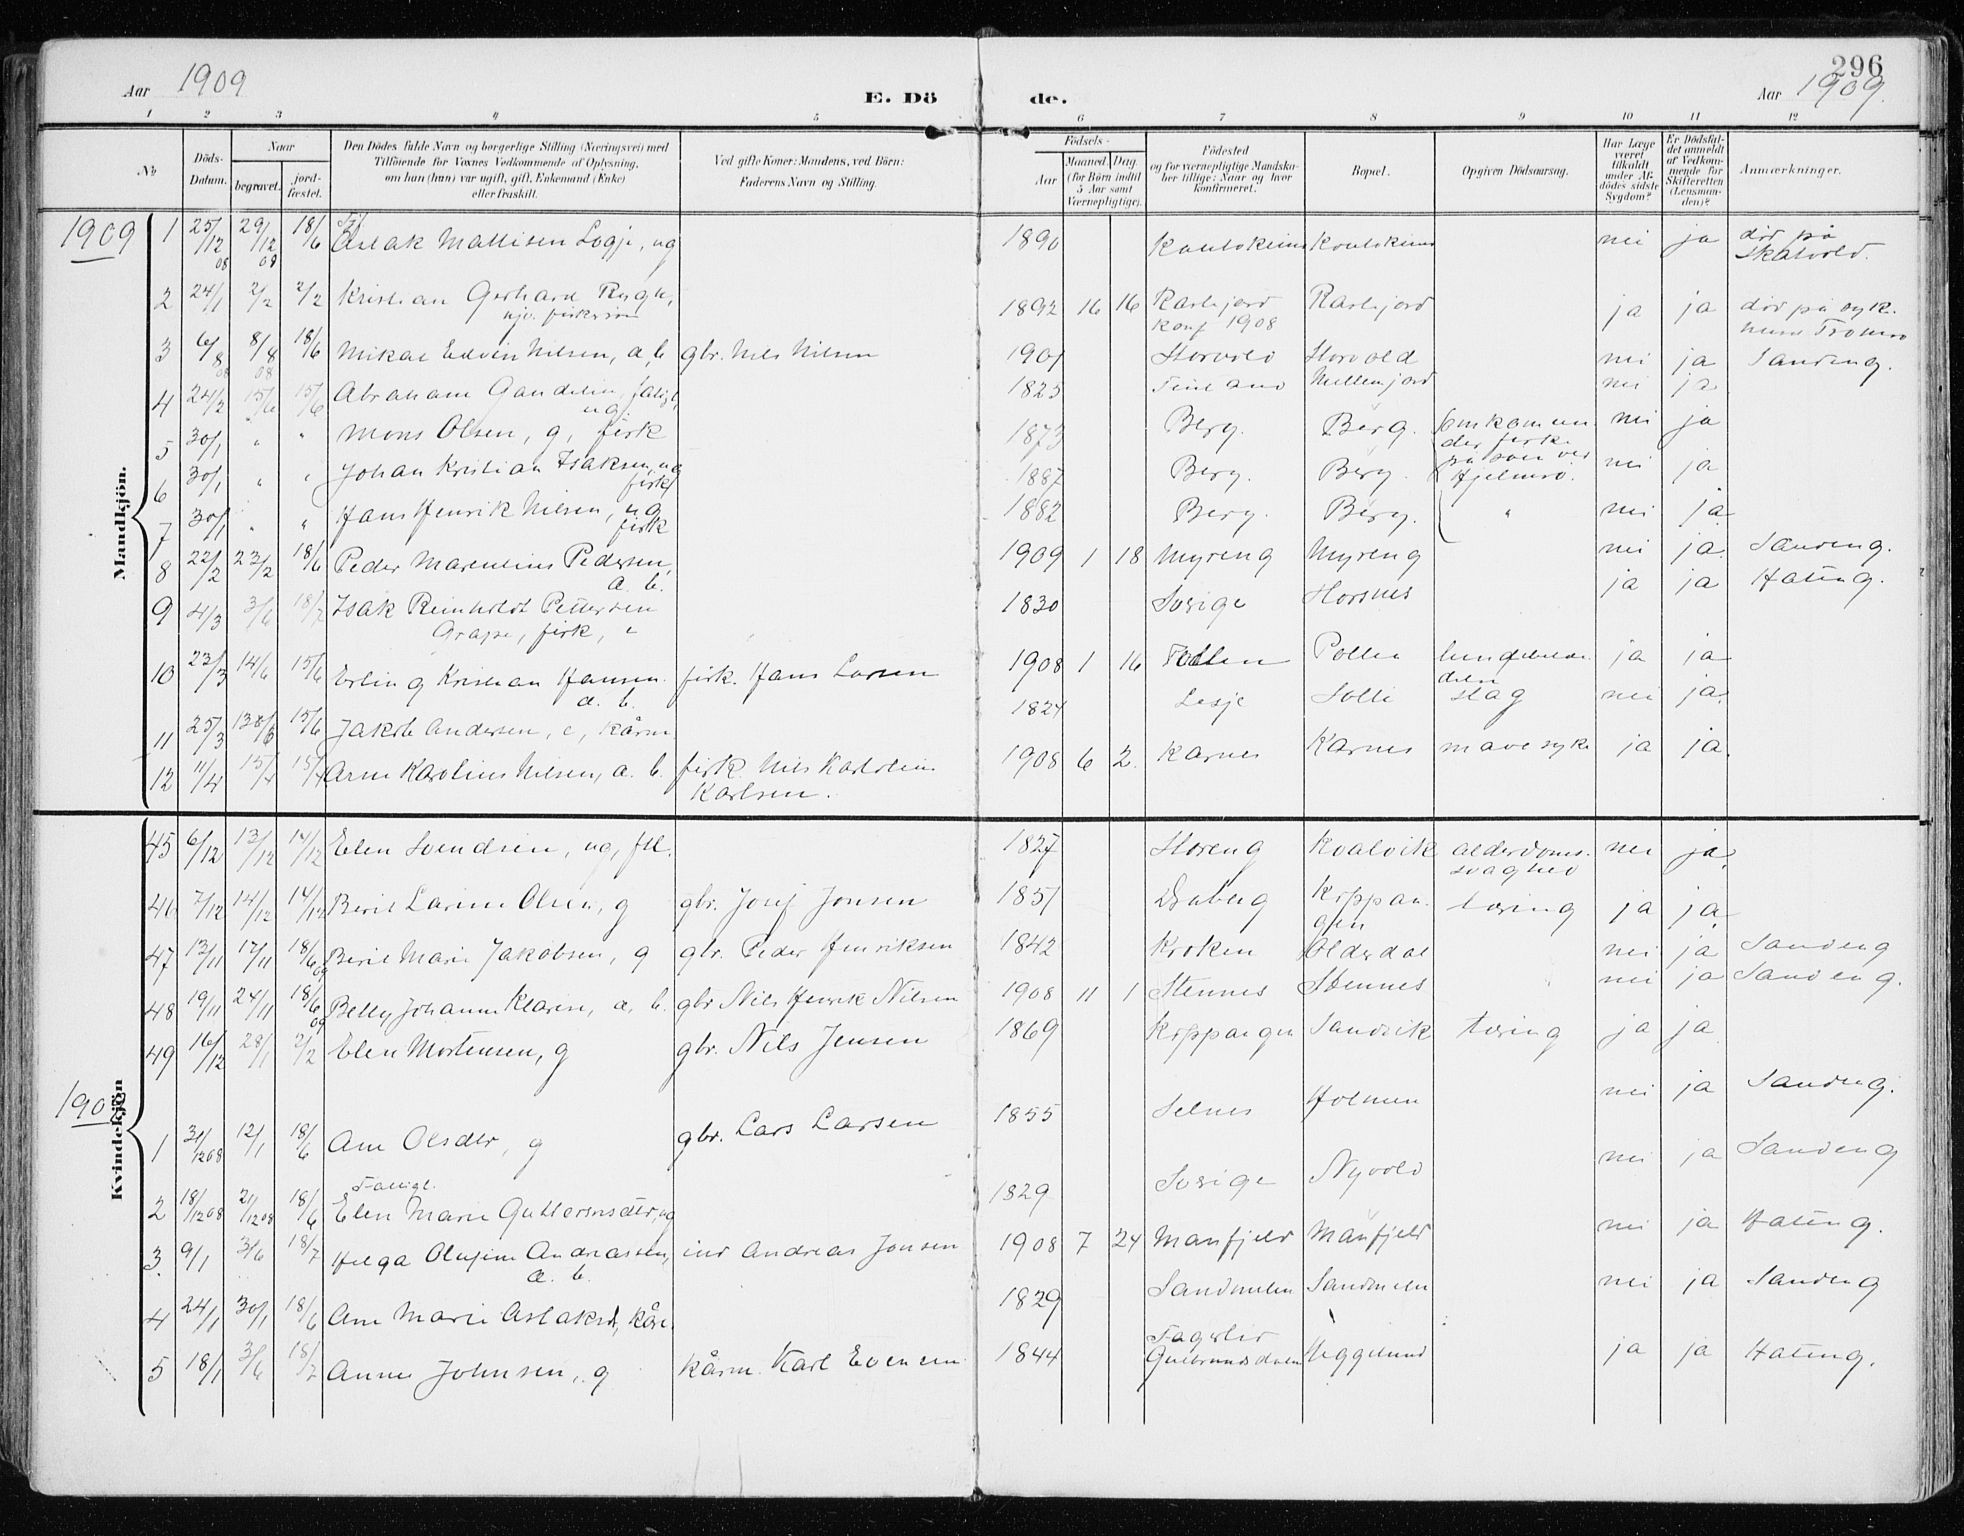 296
Aar 1909
E. Dö de.
Aar 1909.
1 2 3 4 5 6 7 8 9 10 11 12
№
Döds-Datum.
Naar
begravet.
jord-fæstet.
Den Dödes fulde Navn og borgerlige Stilling (Næringsvei) med
Tilföiende for Voxnes Vedkommende af Oplysning,
om han (hun) var ugift, gift, Enkemand (Enke)
eller fraskilt.
Ved gifte Koner: Mandens, ved Börn:
Faderens Navn og Stilling.
Födsels-
Aar
Maaned. Dag.
(for Börn indtil
5 Aar samt
Værnepligtige).
Födested
og for værnepligtige Mandska-
ber tillige: Naar og hvor
konfirmeret.
Bopæl.
Opgiven Dödsaarsag.
Har Læge
været
tilkaldt
under Af-
dödes sidste
Sygdom?
Er Dödsfal-
det anmeldt
af Vedkom-
mende for
Skifteretten
(Lensman-
den)?
Anmærkninger.
Mandkjön.
1909 1 25/12 08 29/12 08 18/6 Aslak Mathisen Logje, ug 1890 Kautokeino Kautokeino nei ja død på
Skatvold.
2 24/1 2/2 2/2 Kristian Gerhard 1892 16 16 Karlsjord Karlsjord ja ja død på syk.
konf 1908
3 6/8 08 8/8 08 18/6 Mikal Edvin Nilsen, a, b gbr. Nils Nilsen 1901 Storvold Storvold nei ja Sandeng.
4 24/2 15/6 15/6 Abraham fattigl, 1825 Finland nei ja
ug.
5 30/1 " " Mons Olsen, g, fisk 1873 Berg. Berg. omkom un- nei ja
der fiske
6 30/1 " " Johan Kristian Isaksen, ug 1887 Berg. Berg. på søen ved nei ja
fisk Hjelmsø.
7 30/1 " " Hans Henrik Nilsen, ug 1882 Berg. Berg. " nei ja
fisk
8 22/2 23/2 18/6 Peder Marenius Pedersen, 1909 1 18 Myreng Myreng nei ja Sandeng.
a. b.
9 4/3 3/6 18/7 Isak Reinholdt Pettersen 1830 Sverige Horsnes ja ja Hateng.
Grape, fisk, e
10 23/3 14/6 15/6 Erling Kristian Hansen fisk. Hans Larsen 1908 1 16 Pollen Pollen ja ja
a. b.
11 25/3 15/6 Jakob Andersen, e, kårm 1824 Lesje Solli slag nei ja.
12 11/4 15/7 15/7 Arne Karolius Nilsen, a. b. fisk. Nils 1908 6 2 Karnes Karnes mavesyke ja ja.
Karlsen.
Kvindekjön
45 6/12 13/12 14/12 Elen Svendsen, ug, 1827 Storeng Kvalvik alderdoms- nei ja.
svaghed
46 7/12 14/12 14/12 Berit Larine Olsen, g gbr. Josef Jonsen 1851 Koppan- tæring ja ja.
gen
47 13/11 17/11 18/6 09 Berit Marie Jakobsen, g gbr. Peder Henriksen 1842 Kroken Olderdal nei ja Sandeng
48 19/11 24/11 18/6 09 Betty Johanne Klarise, a, b. gbr Nils Henrik Nilsen 1908 11 1 Stennes Stennes nei ja Sandeng.
49 16/12 28/1 2/2 Elen Mortensen, g gbr. Nils Jensen 1869 Koppangen Sandvik tæring ja ja
1909
1 31/12 08 12/1 18/6 Ane Olsdtr, g gbr. Lars Larsen 1855 Selnes Holmen nei ja Sandeng.
2 18/12 08 21/12 08 18/6 Fattigl.
Elen Marie Guttormsdtr, ug 1829 Sverige Nyvold nei ja Sandeng
3. 9/1 3/6 18/7 Helga Olufine Andreassen, ind Andreas Jonsen 1908 7 24 Manfjeld Manfjeld nei ja Hateng.
a. b.
4 24/1 30/1 18/6 Ane Marie Aslaksd, kåre. 1829 Sandmelen Sandmeln nei ja Sandeng
5 18/1 3/6 18/7 Anne Johnsen, g kårm. Karl Evensen 1844 Fagerlid Heggelund ja ja Hateng.
Gulbrandsdalen